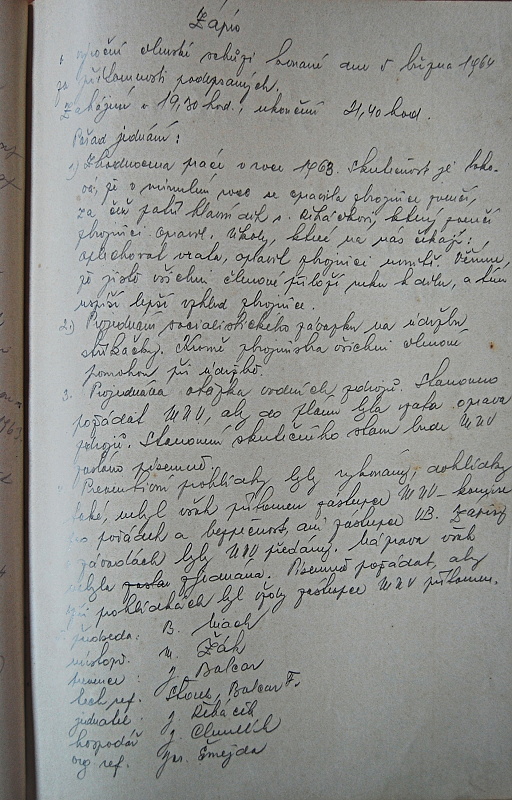 Zápis
z výroční členské schůze konané dne 5 března 1964
za přítomnosti podepsaných.
Zahájení v 19,30 hod., ukončení 21,40 hod.
Pořad jednání:
1) Zhodnocena práce v roce 1963. Skutečnost je tako-
vá, že v minulém roce se opravila zbrojnice zevnčí,
za čež patří hlavní díl s. Řiháčkovi, který zevnčí
zbrojnici opravil. Úkoly, které na nás čekají:
oplechovat vrata, opravit zbrojnici uvnitř. Věříme,
že jistě všichni členové přiloží ruku k dílu, a tím
lepší vzhled zbrojnice.
2.) Projednání socialistického závazku na údržbu
stříkačky. Kromě zbrojmistra všichni členové
pomohou při údržbě.
3. Projednána otázka vodních zdrojů. Stanoveno
požádat MNV, aby do plánu byla vzata oprava
zdrojů. Stanovení skutečného stavu bude MNV
zasláno písemně.
Preventivní prohlídky byly vykonány, dohlídky
také, nebyl však přítomen zástupce MNV - komise
pro pořádek a bezpečnost, ani zástupce VB. Zápisy
o závadách byly MNV předány. Náprava však
nebyla zjednána. Písemně požádat, aby
při prohlídkách byl vždy zástupce MNV přítomen.
předseda: B. Mach
místopř. M. Žák
J. Balcar
tech. ref. Balcar F.
jednatel: J. Řiháček
hospodář J.
org. ref. Jar. Šmejda